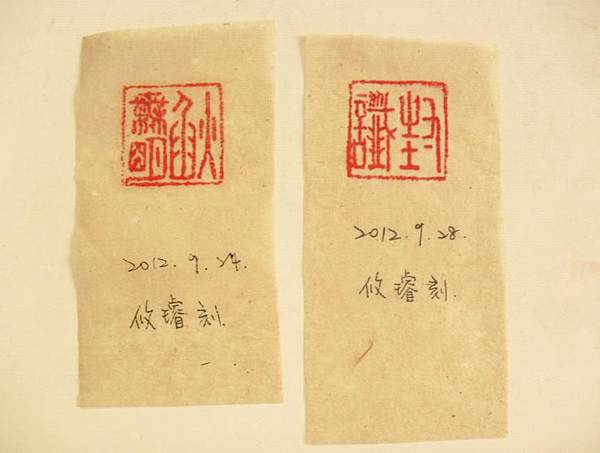 焰無明
2012.9.24.
攸璿刻.
封讖
2012.9.28.
攸璿刻.